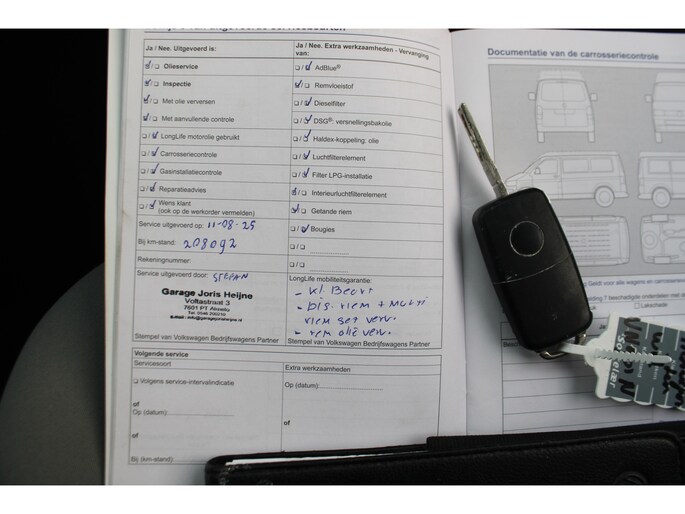 Ja / Nee. Uitgevoerd is:
Olieservice
Inspectie
Met olie verversen
Met aanvullende controle
LongLife motorolie gebruikt
Carrosseriecontrole
Gasinstallatiecontrole
Reparatieadvies
Wens klant
(ook op de werkorder vermelden)
Service uitgevoerd op: 11-08-25
Bij km-stand: 208092
Rekeningnummer:
Service uitgevoerd door: STEFAN
Garage Joris Heijne
Voltastraat 3
7601 PT Almelo
Stempel van Volkswagen Bedrijfswagens Partner
Ja / Nee. Extra werkzaamheden - Vervanging
van:
AdBlue®
Remvloeistof
Dieselfilter
DSG®: versnellingsbakolie
Haldex-koppeling: olie
Luchtfilterelement
Filter LPG-installatie
Interieurluchtfilterelement
Getande riem
Bougies
LongLife mobiliteitsgarantie:
- Kl. Beurt
- Dis. riem + Multi
riem set verv.
- rem olie verv.
Stempel van Volkswagen Bedrijfswagens Partner
Volgende service
Servicesoort
Volgens service-intervalindicatie
of
Op (datum):
of
Bij (km-stand):
Extra werkzaamheden
Op (datum):
of
Documentatie van de carrosseriecontrole